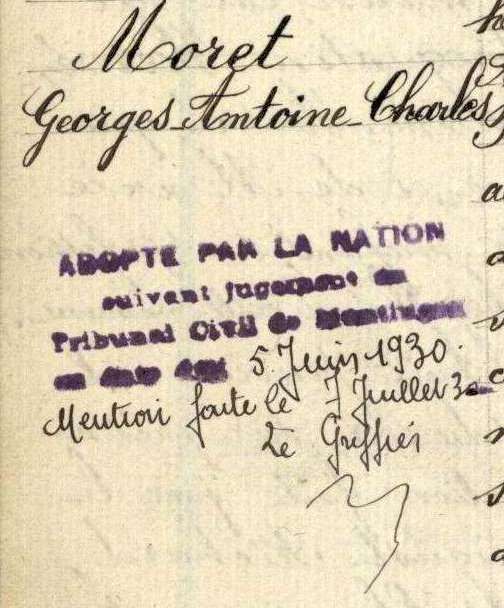 Moret
Georges-Antoine-Charles
ADOPTE PAR LA NATION
suivant jugement du
Tribunal Civil de
en date du 5 Juin 1930.
Mention faite le 7 Juillet 30
Le Greffier